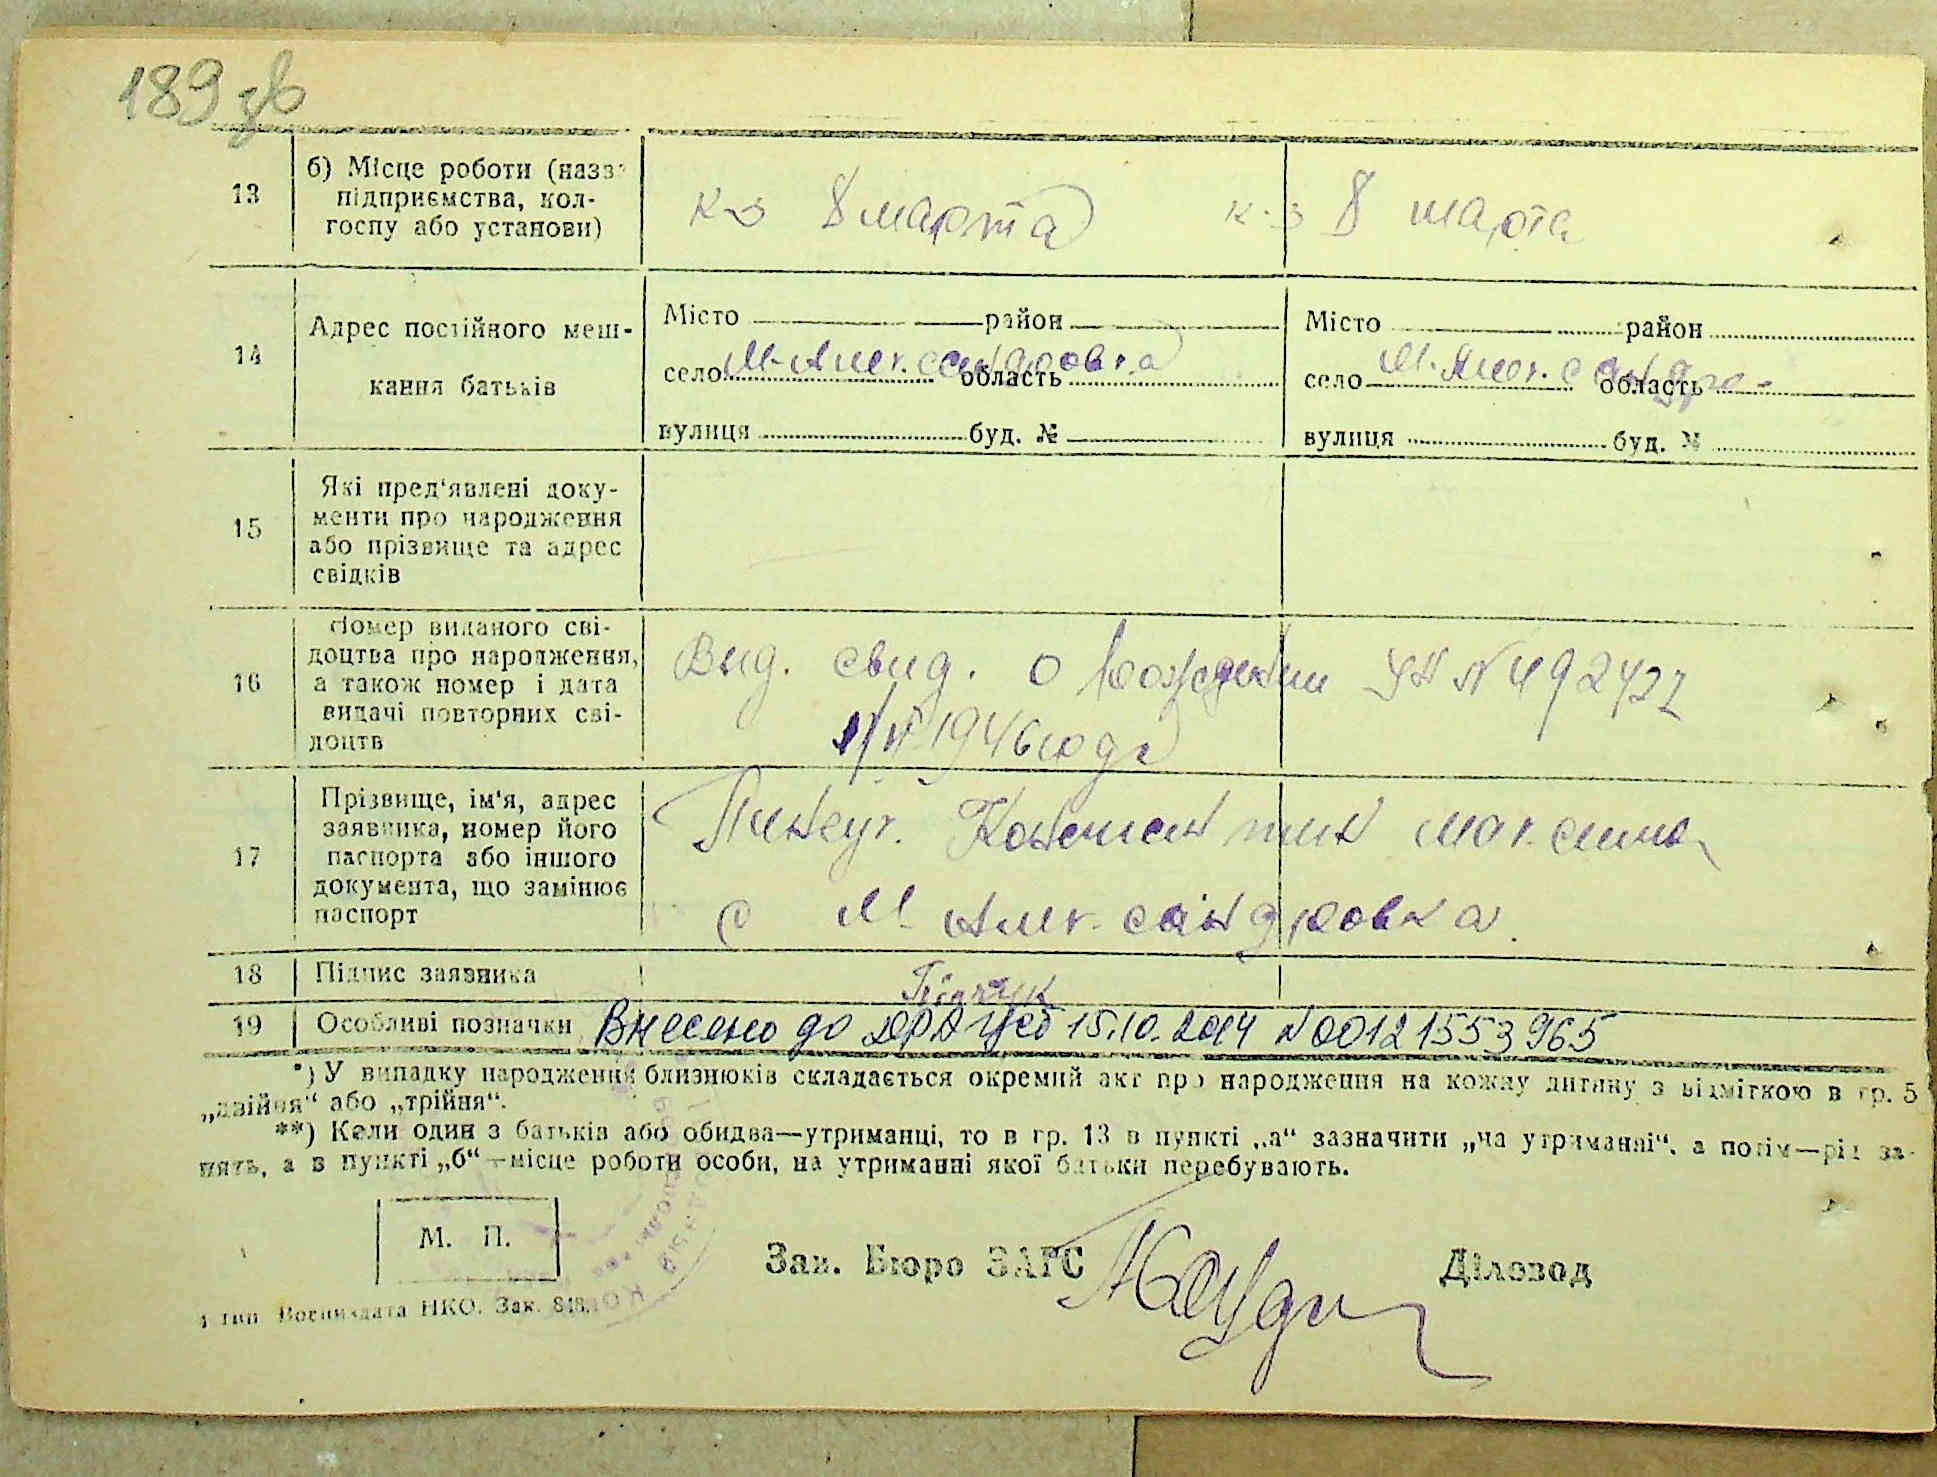 189 зв
13 б) Місце роботи (назва
підприємства, кол-
госпу або установи)
к-з 8 марта к-з 8 марта
14 Адрес постійного меш-
кання батьків
Місто район Місто район
село М-Александровка область село М. Александро- область
вулиця буд. № вулиця буд. №
15 Які пред'явлені доку-
менти про народження
або прізвище та адрес
свідків
16 Номер виданого сві-
доцтва про народження,
а також номер і дата
видачі повторних сві-
доцтв
Выд. свид. о рождении № 492427
1946 года
17 Прізвище, ім'я, адрес
заявника, номер його
паспорта або іншого
документа, що замінює
паспорт
Константин Максимо
с М Александровка
18 Підпис заявника
19 Особливі позначки Внесено до ДРАЦСГ 15.10.2014 №00121553965
*) У випадку народження близнюків складається окремий акт про народження на кожну дитину з відміткою в гр. 5
„двійня“ або „трійня“.
**) Коли один з батьків або обидва—утриманці, то в гр. 13 в пункті „а“ зазначити „на утриманні“, а потім—рід за-
нять, а в пункті „б“—місце роботи особи, на утриманні якої батьки перебувають.
М. П.
Зав. Бюро ЗАГС Діловод
1 тип. Воениздата НКО. Зак. 848.